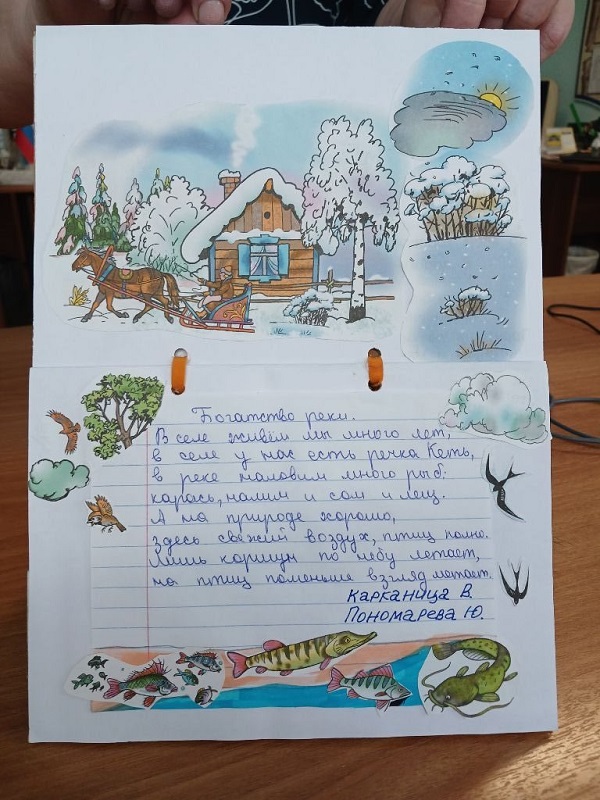 Богатство реки.
В селе живём мы много лет,
в селе у нас есть речка Кеть,
в реке наловим много рыб:
карась, налим и сом и лещ.
А на природе хорошо,
здесь свежий воздух, птиц полно.
Лишь коршун по небу летает,
на птиц поменьше взгляд метает.
Карканица В.
Пономарева Ю.